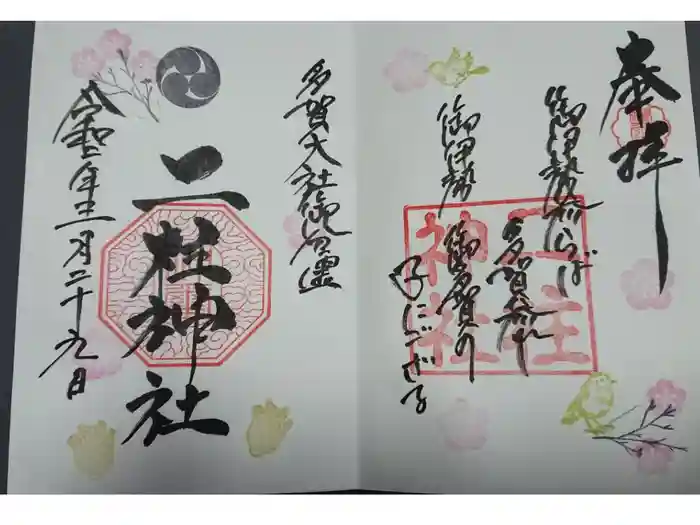 奉拝
御伊勢参らば
お多賀参れ
御伊勢
御多賀の
子にござる
二柱
神社
多賀大社御分霊
二柱神社
令和二年三月二十九日